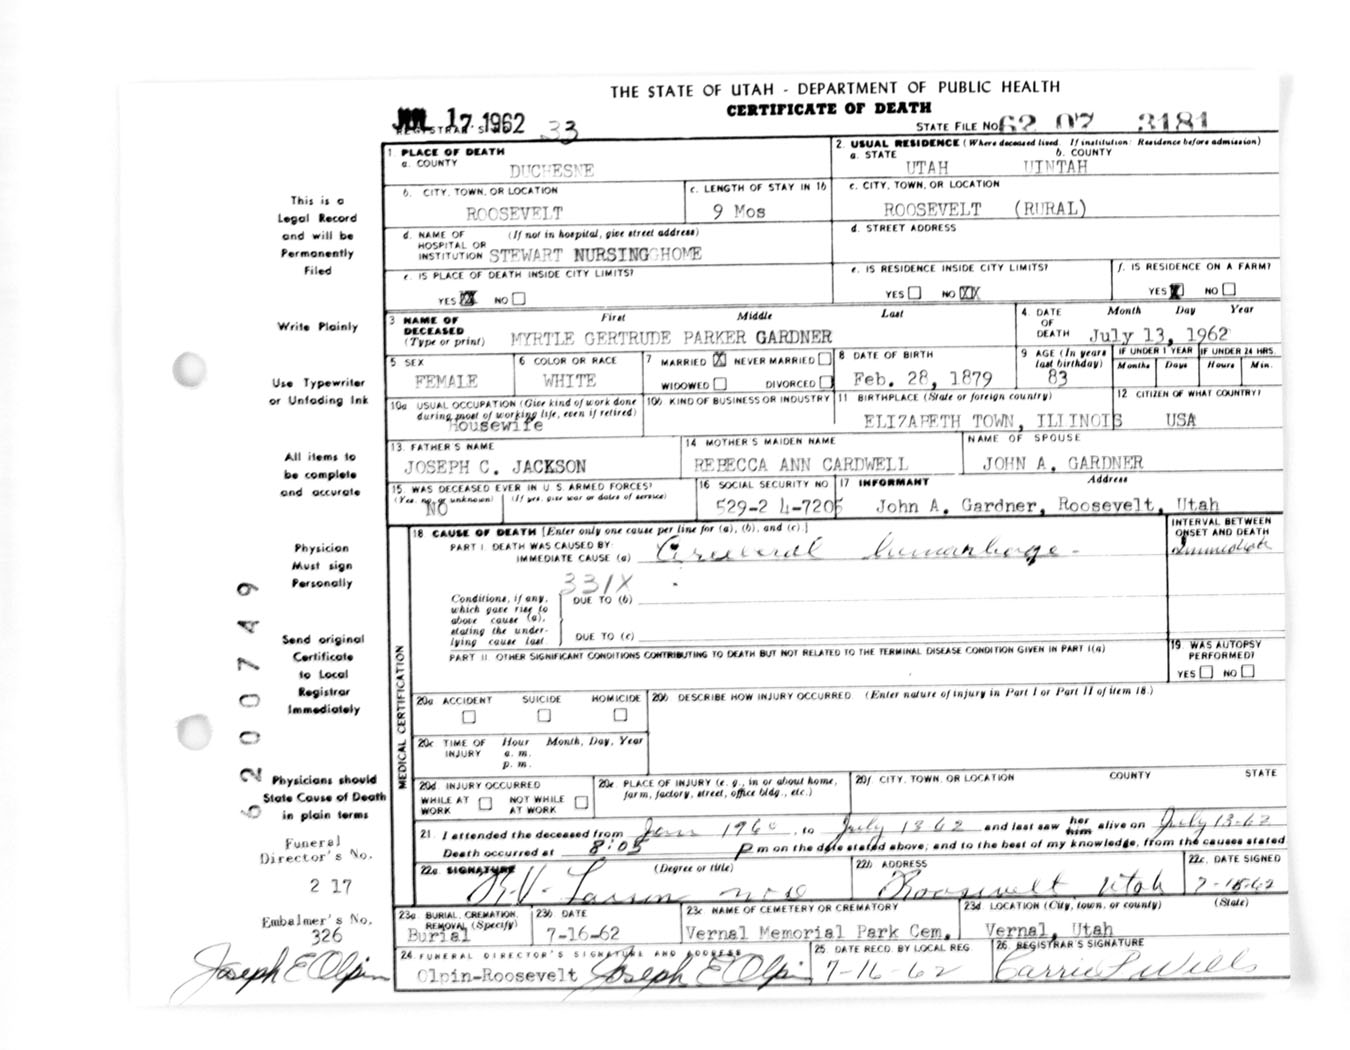 THE STATE OF UTAH - DEPARTMENT OF PUBLIC HEALTH
CERTIFICATE OF DEATH
JUL 17 1962 33
REGISTRAR'S NO.
STATE FILE NO. 62 07 3181
1 PLACE OF DEATH
a. COUNTY
DUCHESNE
2. USUAL RESIDENCE (Where deceased lived. If institution: Residence before admission)
a. STATE b. COUNTY
UTAH UINTAH
b. CITY, TOWN, OR LOCATION
ROOSEVELT
c. LENGTH OF STAY IN 1b
9 Mos
c. CITY, TOWN, OR LOCATION
ROOSEVELT (RURAL)
d. NAME OF (If not in hospital, give street address)
HOSPITAL OR
INSTITUTION STEWART NURSING HOME
d. STREET ADDRESS
e. IS PLACE OF DEATH INSIDE CITY LIMITS?
YES XX NO
e. IS RESIDENCE INSIDE CITY LIMITS?
YES NO XX
f. IS RESIDENCE ON A FARM?
YES X NO
3 NAME OF First Middle Last
DECEASED
(Type or print) MYRTLE GERTRUDE PARKER GARDNER
4. DATE Month Day Year
OF
DEATH July 13, 1962
5 SEX
FEMALE
6 COLOR OR RACE
WHITE
7 MARRIED X NEVER MARRIED
WIDOWED DIVORCED
8 DATE OF BIRTH
Feb. 28, 1879
9 AGE (In years
last birthday)
83
IF UNDER 1 YEAR IF UNDER 24 HRS.
Months Days Hours Min.
10a USUAL OCCUPATION (Give kind of work done
during most of working life, even if retired)
Housewife
10b KIND OF BUSINESS OR INDUSTRY
11 BIRTHPLACE (State or foreign country)
ELIZABETH TOWN, ILLINOIS
12 CITIZEN OF WHAT COUNTRY?
USA
13. FATHER'S NAME
JOSEPH C. JACKSON
14 MOTHER'S MAIDEN NAME
REBECCA ANN CARDWELL
NAME OF SPOUSE
JOHN A. GARDNER
15. WAS DECEASED EVER IN U S. ARMED FORCES?
(Yes, no, or unknown) (If yes, give war or dates of service)
NO
16 SOCIAL SECURITY NO
529-24-7205
17 INFORMANT Address
John A. Gardner, Roosevelt, Utah
18 CAUSE OF DEATH [Enter only one cause per line for (a), (b), and (c).]
INTERVAL BETWEEN
ONSET AND DEATH
PART I. DEATH WAS CAUSED BY:
IMMEDIATE CAUSE (a) Cerebral hemorrhage - Immediate
331X
Conditions, if any,
which gave rise to
above cause (a),
stating the under-
lying cause last
DUE TO (b)
DUE TO (c)
PART II OTHER SIGNIFICANT CONDITIONS CONTRIBUTING TO DEATH BUT NOT RELATED TO THE TERMINAL DISEASE CONDITION GIVEN IN PART I(a)
19 WAS AUTOPSY
PERFORMED?
YES NO
MEDICAL CERTIFICATION
20a ACCIDENT SUICIDE HOMICIDE
20b DESCRIBE HOW INJURY OCCURRED (Enter nature of injury in Part I or Part II of item 18.)
20c TIME OF Hour Month, Day, Year
INJURY a. m.
p. m.
20d INJURY OCCURRED
WHILE AT NOT WHILE
WORK AT WORK
20e PLACE OF INJURY (e. g., in or about home,
farm, factory, street, office bldg., etc.)
20f CITY, TOWN, OR LOCATION COUNTY STATE
21. I attended the deceased from Jan 1960, to July 13 62 and last saw her him alive on July 13-62
Death occurred at 8:05 P m on the date stated above; and to the best of my knowledge, from the causes stated
22a SIGNATURE (Degree or title)
R.V. Larson MD
22b ADDRESS
Roosevelt Utah
22c. DATE SIGNED
23a BURIAL, CREMATION,
REMOVAL (Specify)
Burial
23b DATE
7-16-62
23c NAME OF CEMETERY OR CREMATORY
Vernal Memorial Park Cem.
23d LOCATION (City, town, or county) (State)
Vernal, Utah
24. FUNERAL DIRECTOR'S SIGNATURE AND ADDRESS
Olpin-Roosevelt Joseph E Olpin
25 DATE RECD. BY LOCAL REG
7-16-62
26. REGISTRAR'S SIGNATURE
Carrie L Wills
This is a
Legal Record
and will be
Permanently
Filed
Write Plainly
Use Typewriter
or Unfading Ink
All items to
be complete
and accurate
Physician
Must sign
Personally
Send original
Certificate
to Local
Registrar
Immediately
Physicians should
State Cause of Death
in plain terms
Funeral
Director's No.
217
Embalmer's No.
326
Joseph E Olpin
6200749